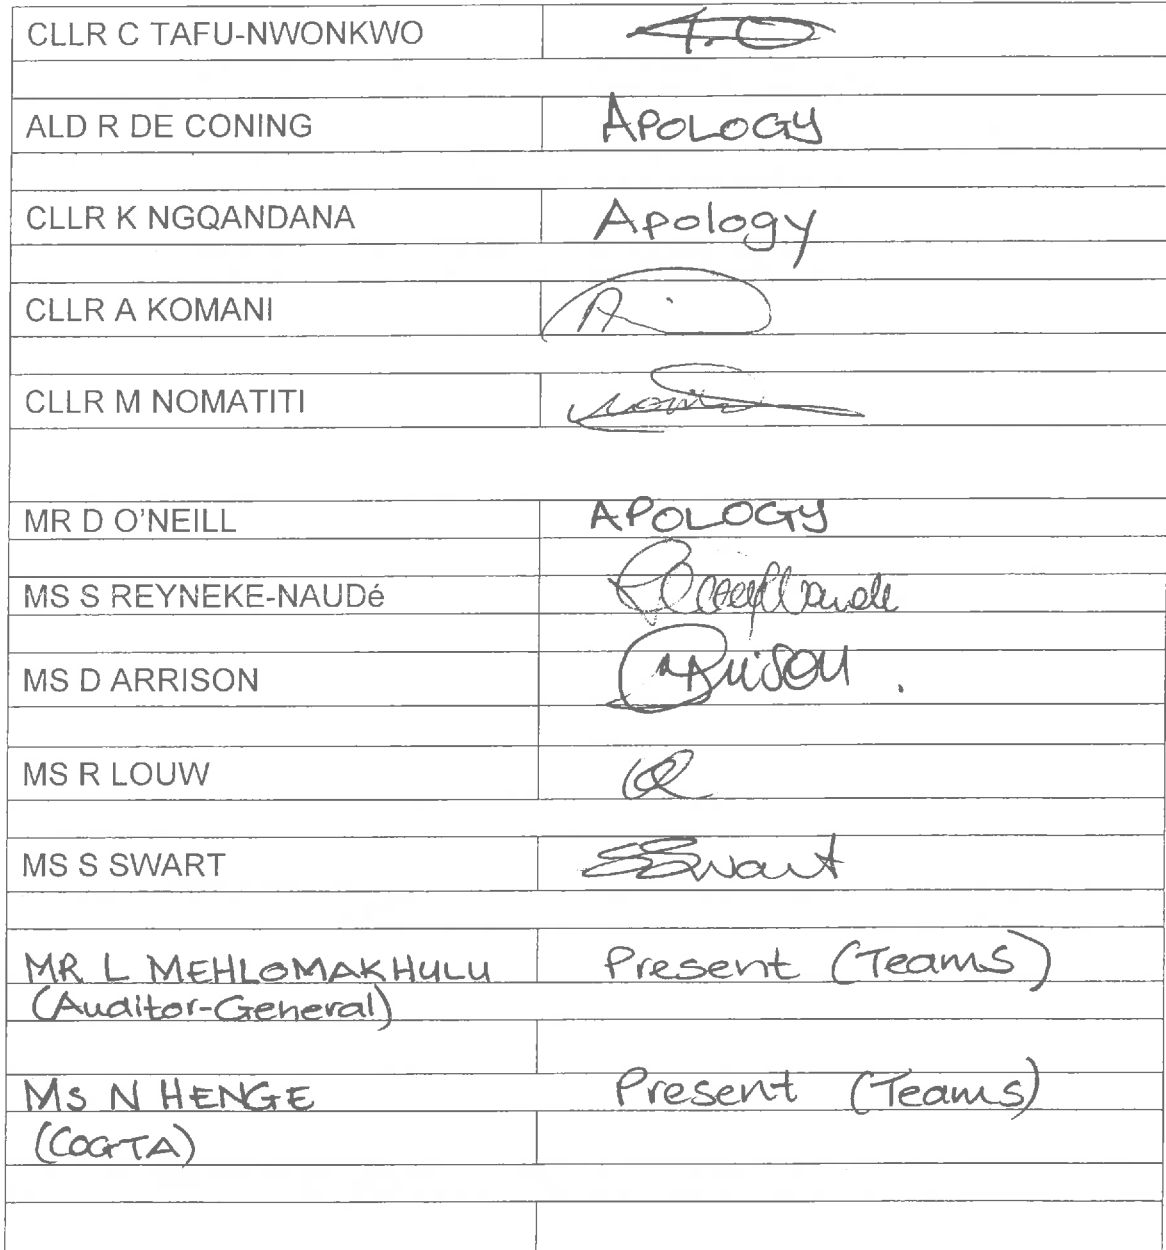 CLLR C TAFU-NWONKWO
ALD R DE CONING APOLOGY
CLLR K NGQANDANA Apology
CLLR A KOMANI
CLLR M NOMATITI
MR D O'NEILL APOLOGY
MS S REYNEKE-NAUDé
MS D ARRISON Arrison
MS R LOUW
MS S SWART SSwart
MR L MEHLOMAKHULU Present (Teams)
(Auditor-General)
Ms N HENGE Present (Teams)
(COGTA)